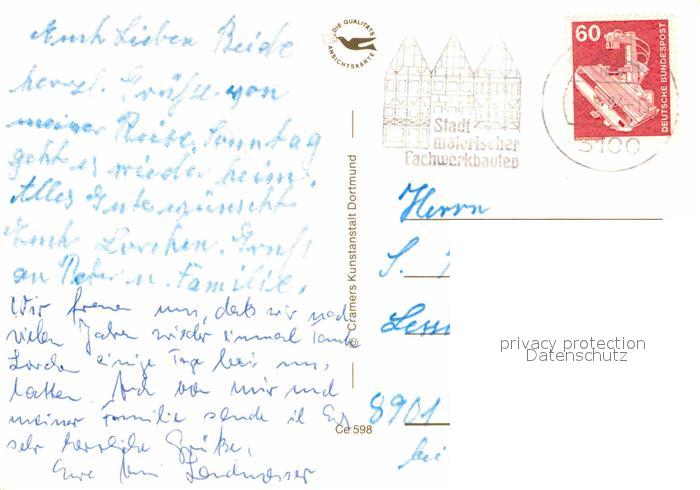 Euch Lieben Beide
herzl. Grüße von
meiner Reise, Sonntag
geht es wieder heim.
Alles Gute wünscht
Euch Lorchen. Gruß
an Peter u. Familie.
Wir freuen uns, daß wir nach
vielen Jahren wieder einmal Tante
Lorchen einige Tage bei uns
hatten. Auch von mir und
meiner Familie sende ich Euch
sehr herzliche Grüße,
Eure Landwasser
DIE QUALITÄTS
ANSICHTSKARTE
© Cramers Kunstanstalt Dortmund
Ce 598
Stadt
malerischer
Fachwerkbauten
60
DEUTSCHE BUNDESPOST
3100
Herrn
S.
8901
bei
privacy protection
Datenschutz